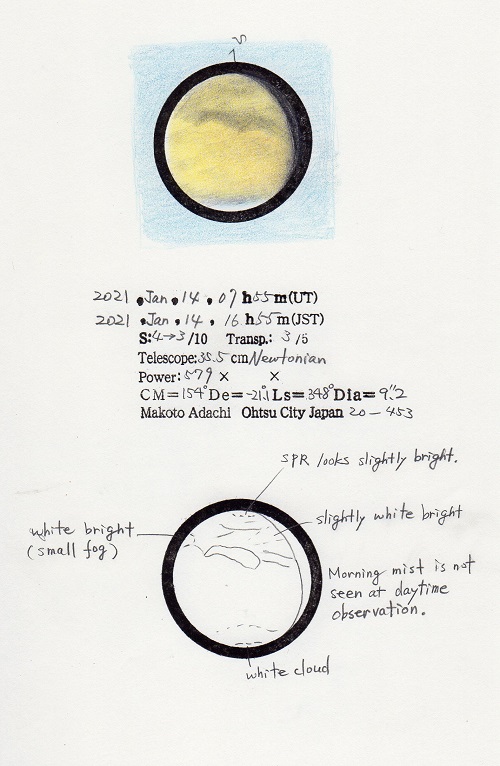 S
2021 Jan. 14, 07h55m(UT)
2021 Jan. 14, 16h55m(JST)
S:4→3/10 Transp.: 3/5
Telescope:35.5cm Newtonian
Power:579× ×
CM=154° De=-21.1 Ls=348° Dia=9."2
Makoto Adachi Ohtsu City Japan 20-453
SPR looks slightly bright.
slightly white bright
white bright
(small fog)
Morning mist is not
seen at daytime
observation.
white cloud